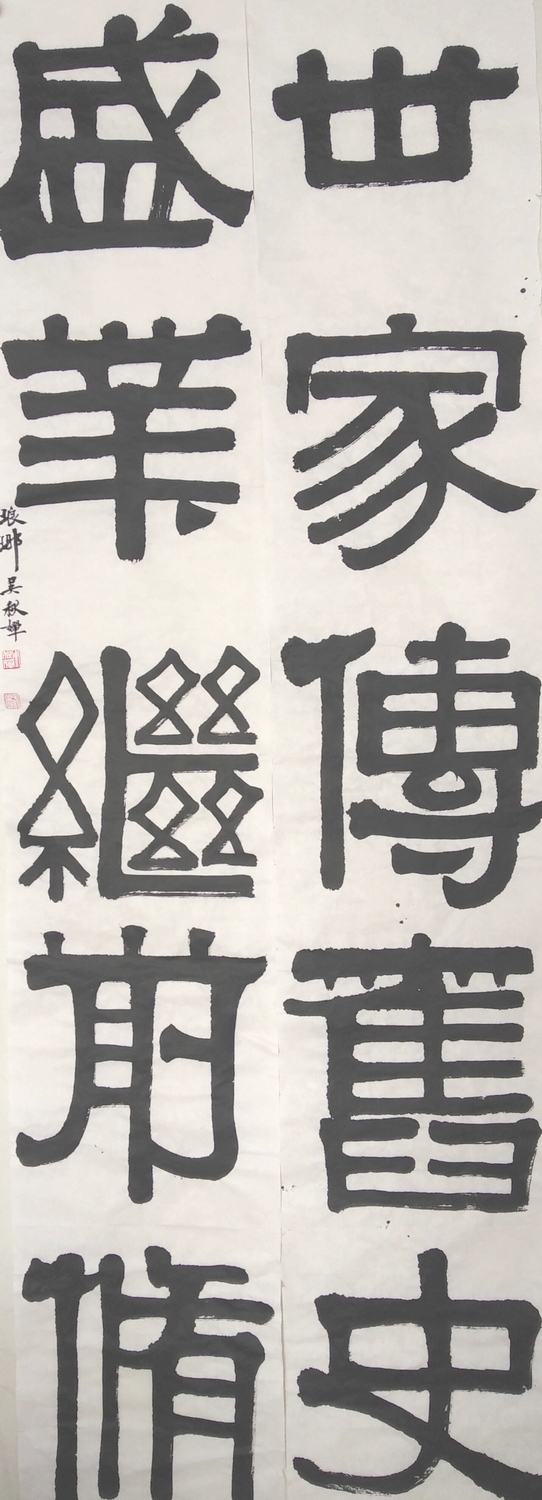 世家傳舊史
盛業繼前脩
琅琊 吴秋嬋